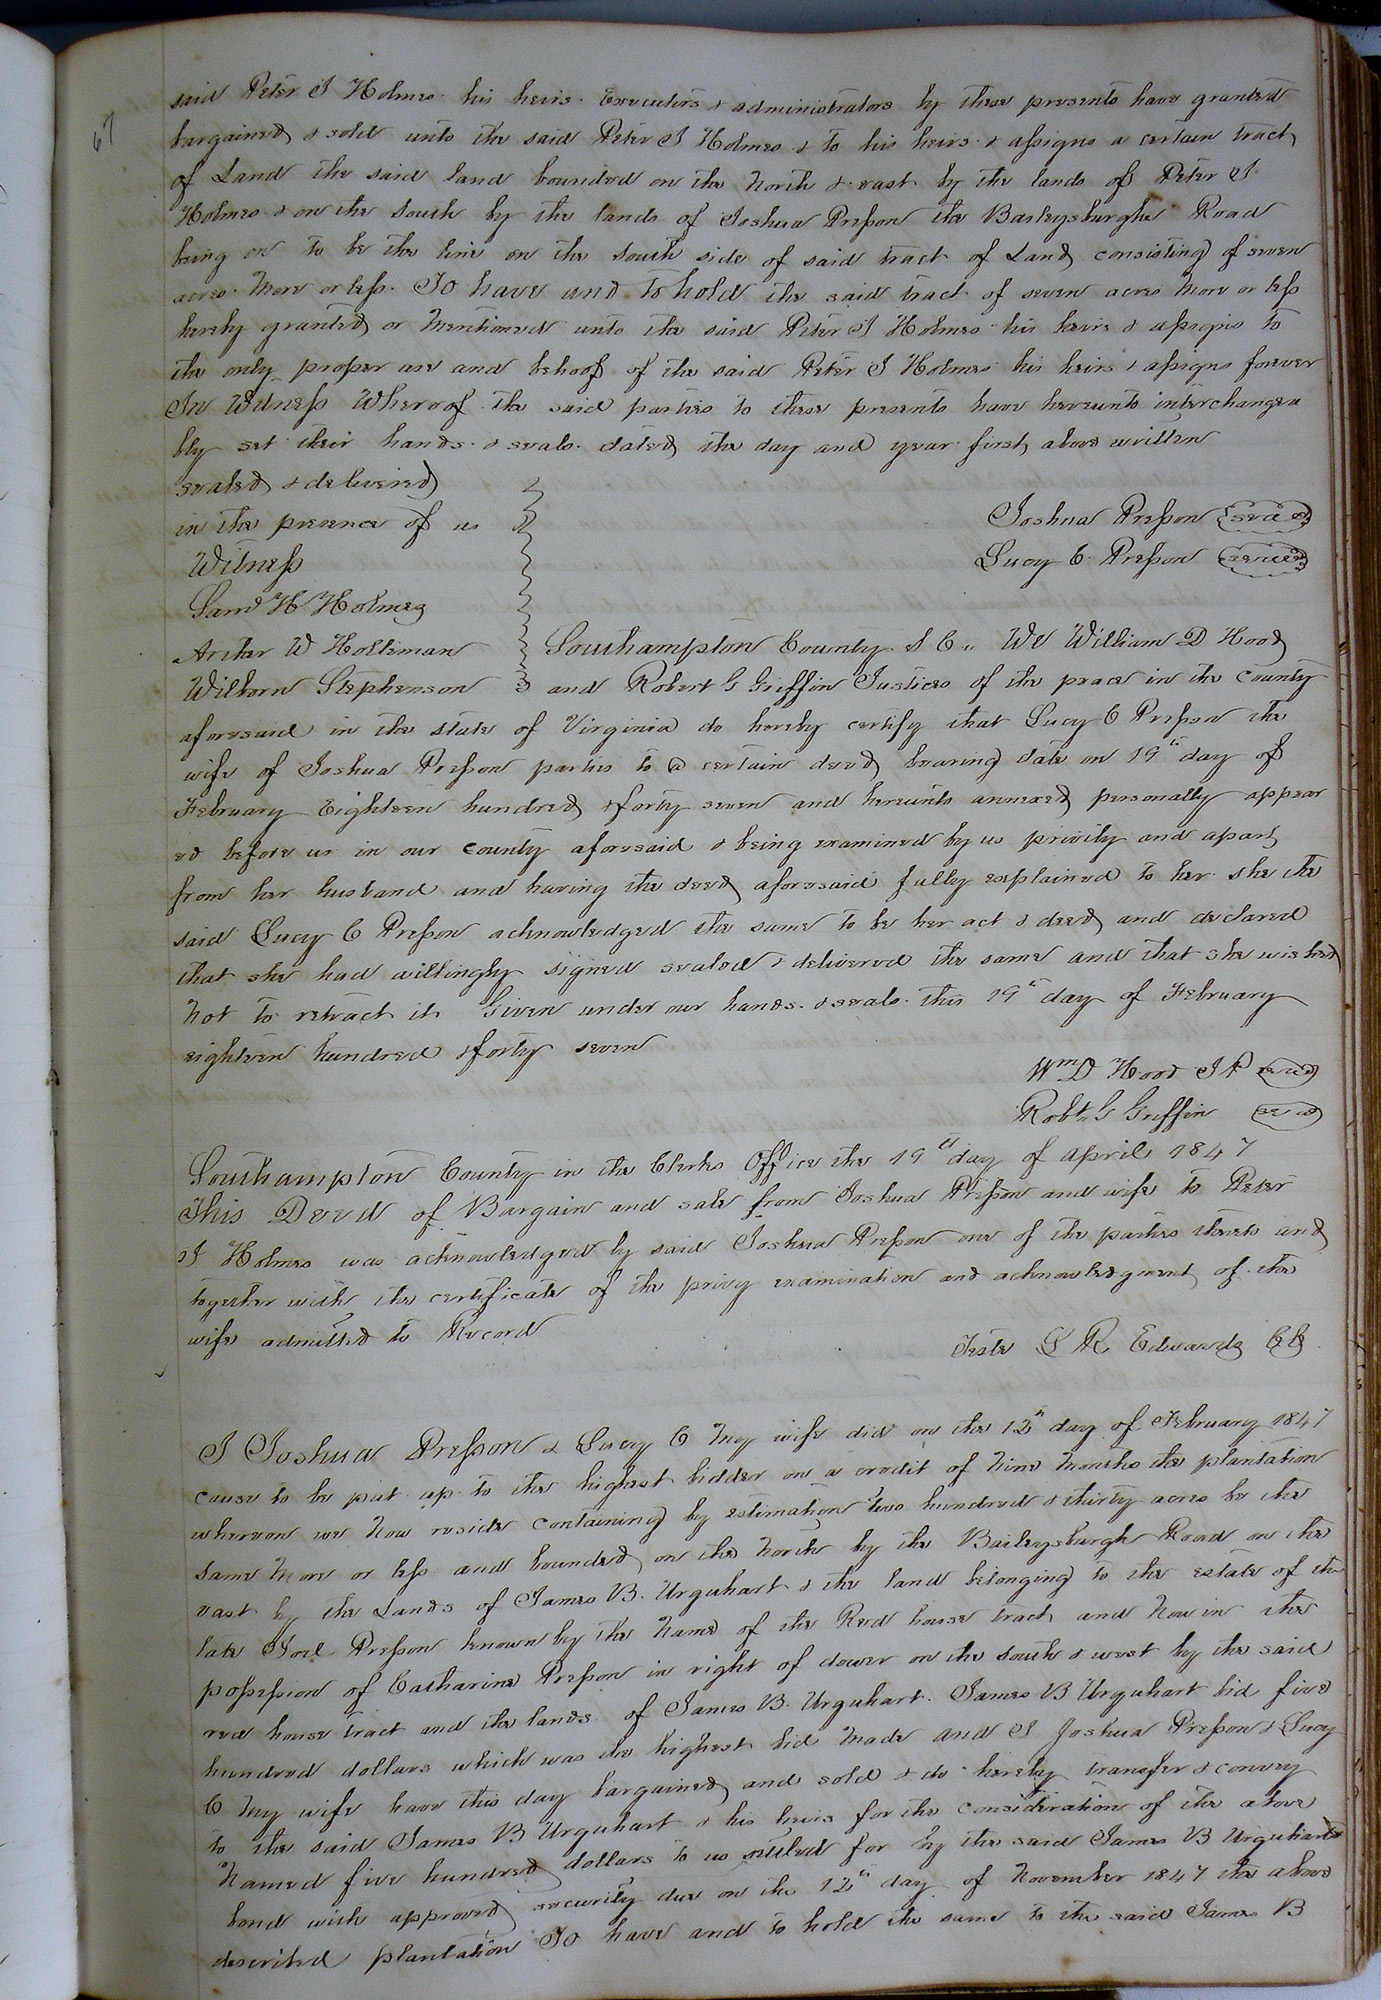 67
said Peter J Holmes his heirs Executors & administrators by these presents have granted
bargained & sold unto the said Peter J Holmes & to his heirs & assigns a certain tract
of Land the said land bounded on the North & east by the lands of Peter J
Holmes & on the South by the lands of Joshua Presson the Baileysburgh Road
being on to be the line on the South side of said tract of Land consisting of seven
acres More or less. To have and to hold the said tract of seven acres More or less
hereby granted or Mentioned unto the said Peter J Holmes his heirs & assigns to
the only proper use and behoof of the said Peter J Holmes his heirs & assigns forever
In Witness Whereof the said parties to these presents have hereunto interchangea
bly set their hands & seals dated the day and year first above written
sealed & delivered
in the presence of us
Joshua Presson seal
Witness
Lucy C Presson seal
Saml H Holmes
Archer W Holleman
Southampton County S C.. We William D Hood
Wilborn Stephenson
and Robert G Griffin Justices of the peace in the County
aforesaid in the state of Virginia do hereby certify that Lucy C Presson the
wife of Joshua Presson parties to a certain deed bearing date on 19th day of
February Eighteen hundred & forty seven and hereunto annexed personally appear
ed before us in our County aforesaid & being examined by us privily and apart
from her husband and having the deed aforesaid fully explained to her she the
said Lucy C Presson acknowledged the same to be her act & deed and declared
that she had willingly signed sealed & delivered the same and that she wished
Not to retract it Given under our hands & seals this 19th day of February
eighteen hundred & forty seven
Wm D Hood J P seal
Robt G Griffin seal
Southampton County in the Clerks Office the 19th day of April 1847
This Deed of Bargain and sale from Joshua Presson and wife to Peter
J Holmes was acknowledged by said Joshua Presson one of the parties thereto and
together with the certificate of the privy examination and acknowledgment of the
wife admitted to Record
Teste L R Edwards CC
I Joshua Presson & Lucy C My wife did on the 12th day of February 1847
cause to be put up to the highest bidder on a credit of Nine Months the plantation
whereon we Now reside containing by estimation two hundred & thirty acres be the
same More or less and bounded on the North by the Baileysburgh Road on the
east by the Lands of James B. Urquhart & the land belonging to the estate of the
late Joel Presson known by the Name of the Red house tract and Now in the
possession of Catharine Presson in right of dower on the South & west by the said
red house tract and the lands of James B. Urquhart. James B Urquhart bid five
hundred dollars which was the highest bid Made and I Joshua Presson & Lucy
C My wife have this day bargained and sold & do hereby transfer & convey
to the said James B Urquhart & his heirs for the consideration of the above
Named five hundred dollars to us settled for by the said James B Urquharts
bond with approved security due on the 12th day of November 1847 the above
described plantation To have and to hold the same to the said James B